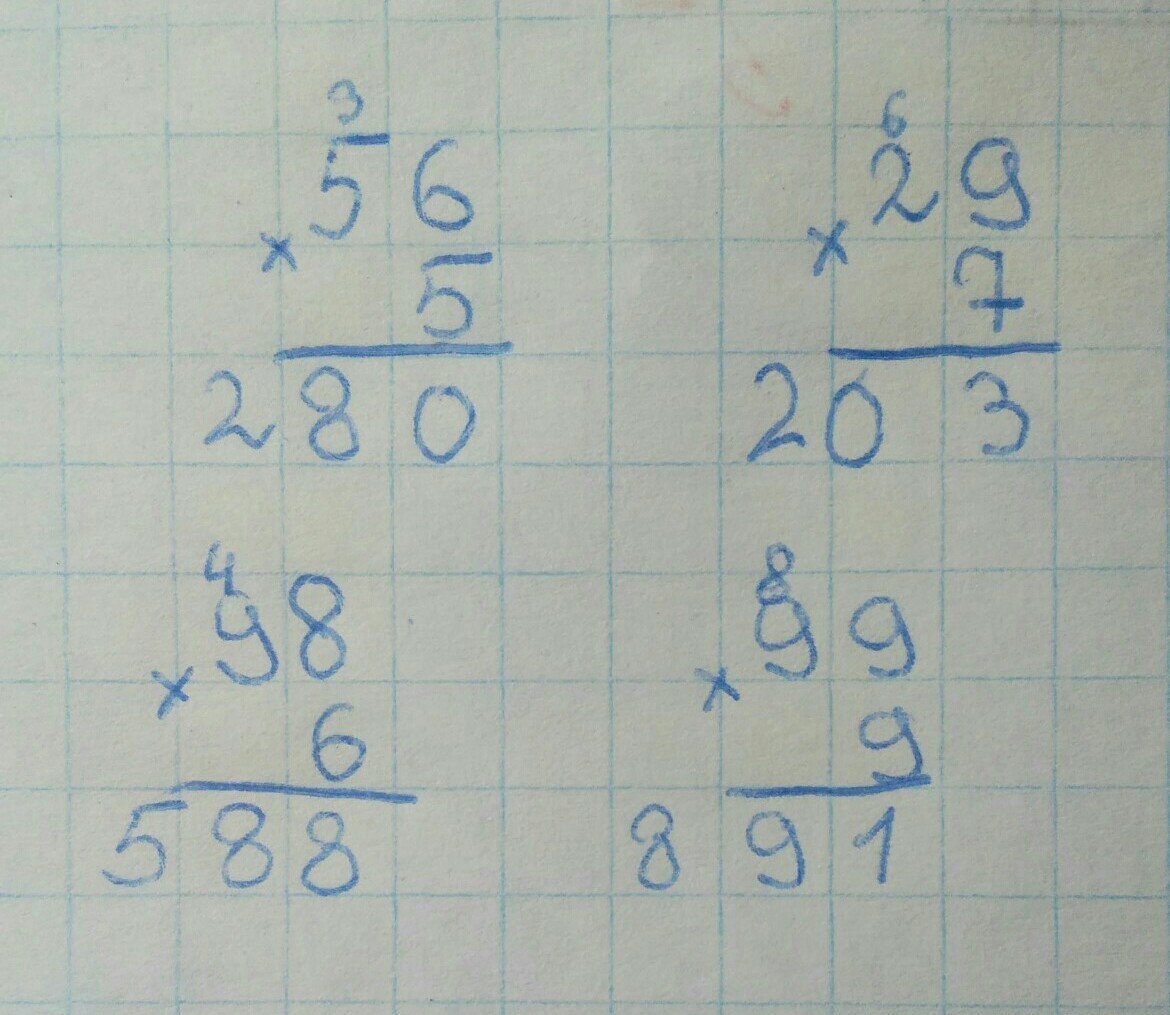 3 6
56 29
× 5 × 7
280 203
4 8
98 99
× 6 × 9
588 891